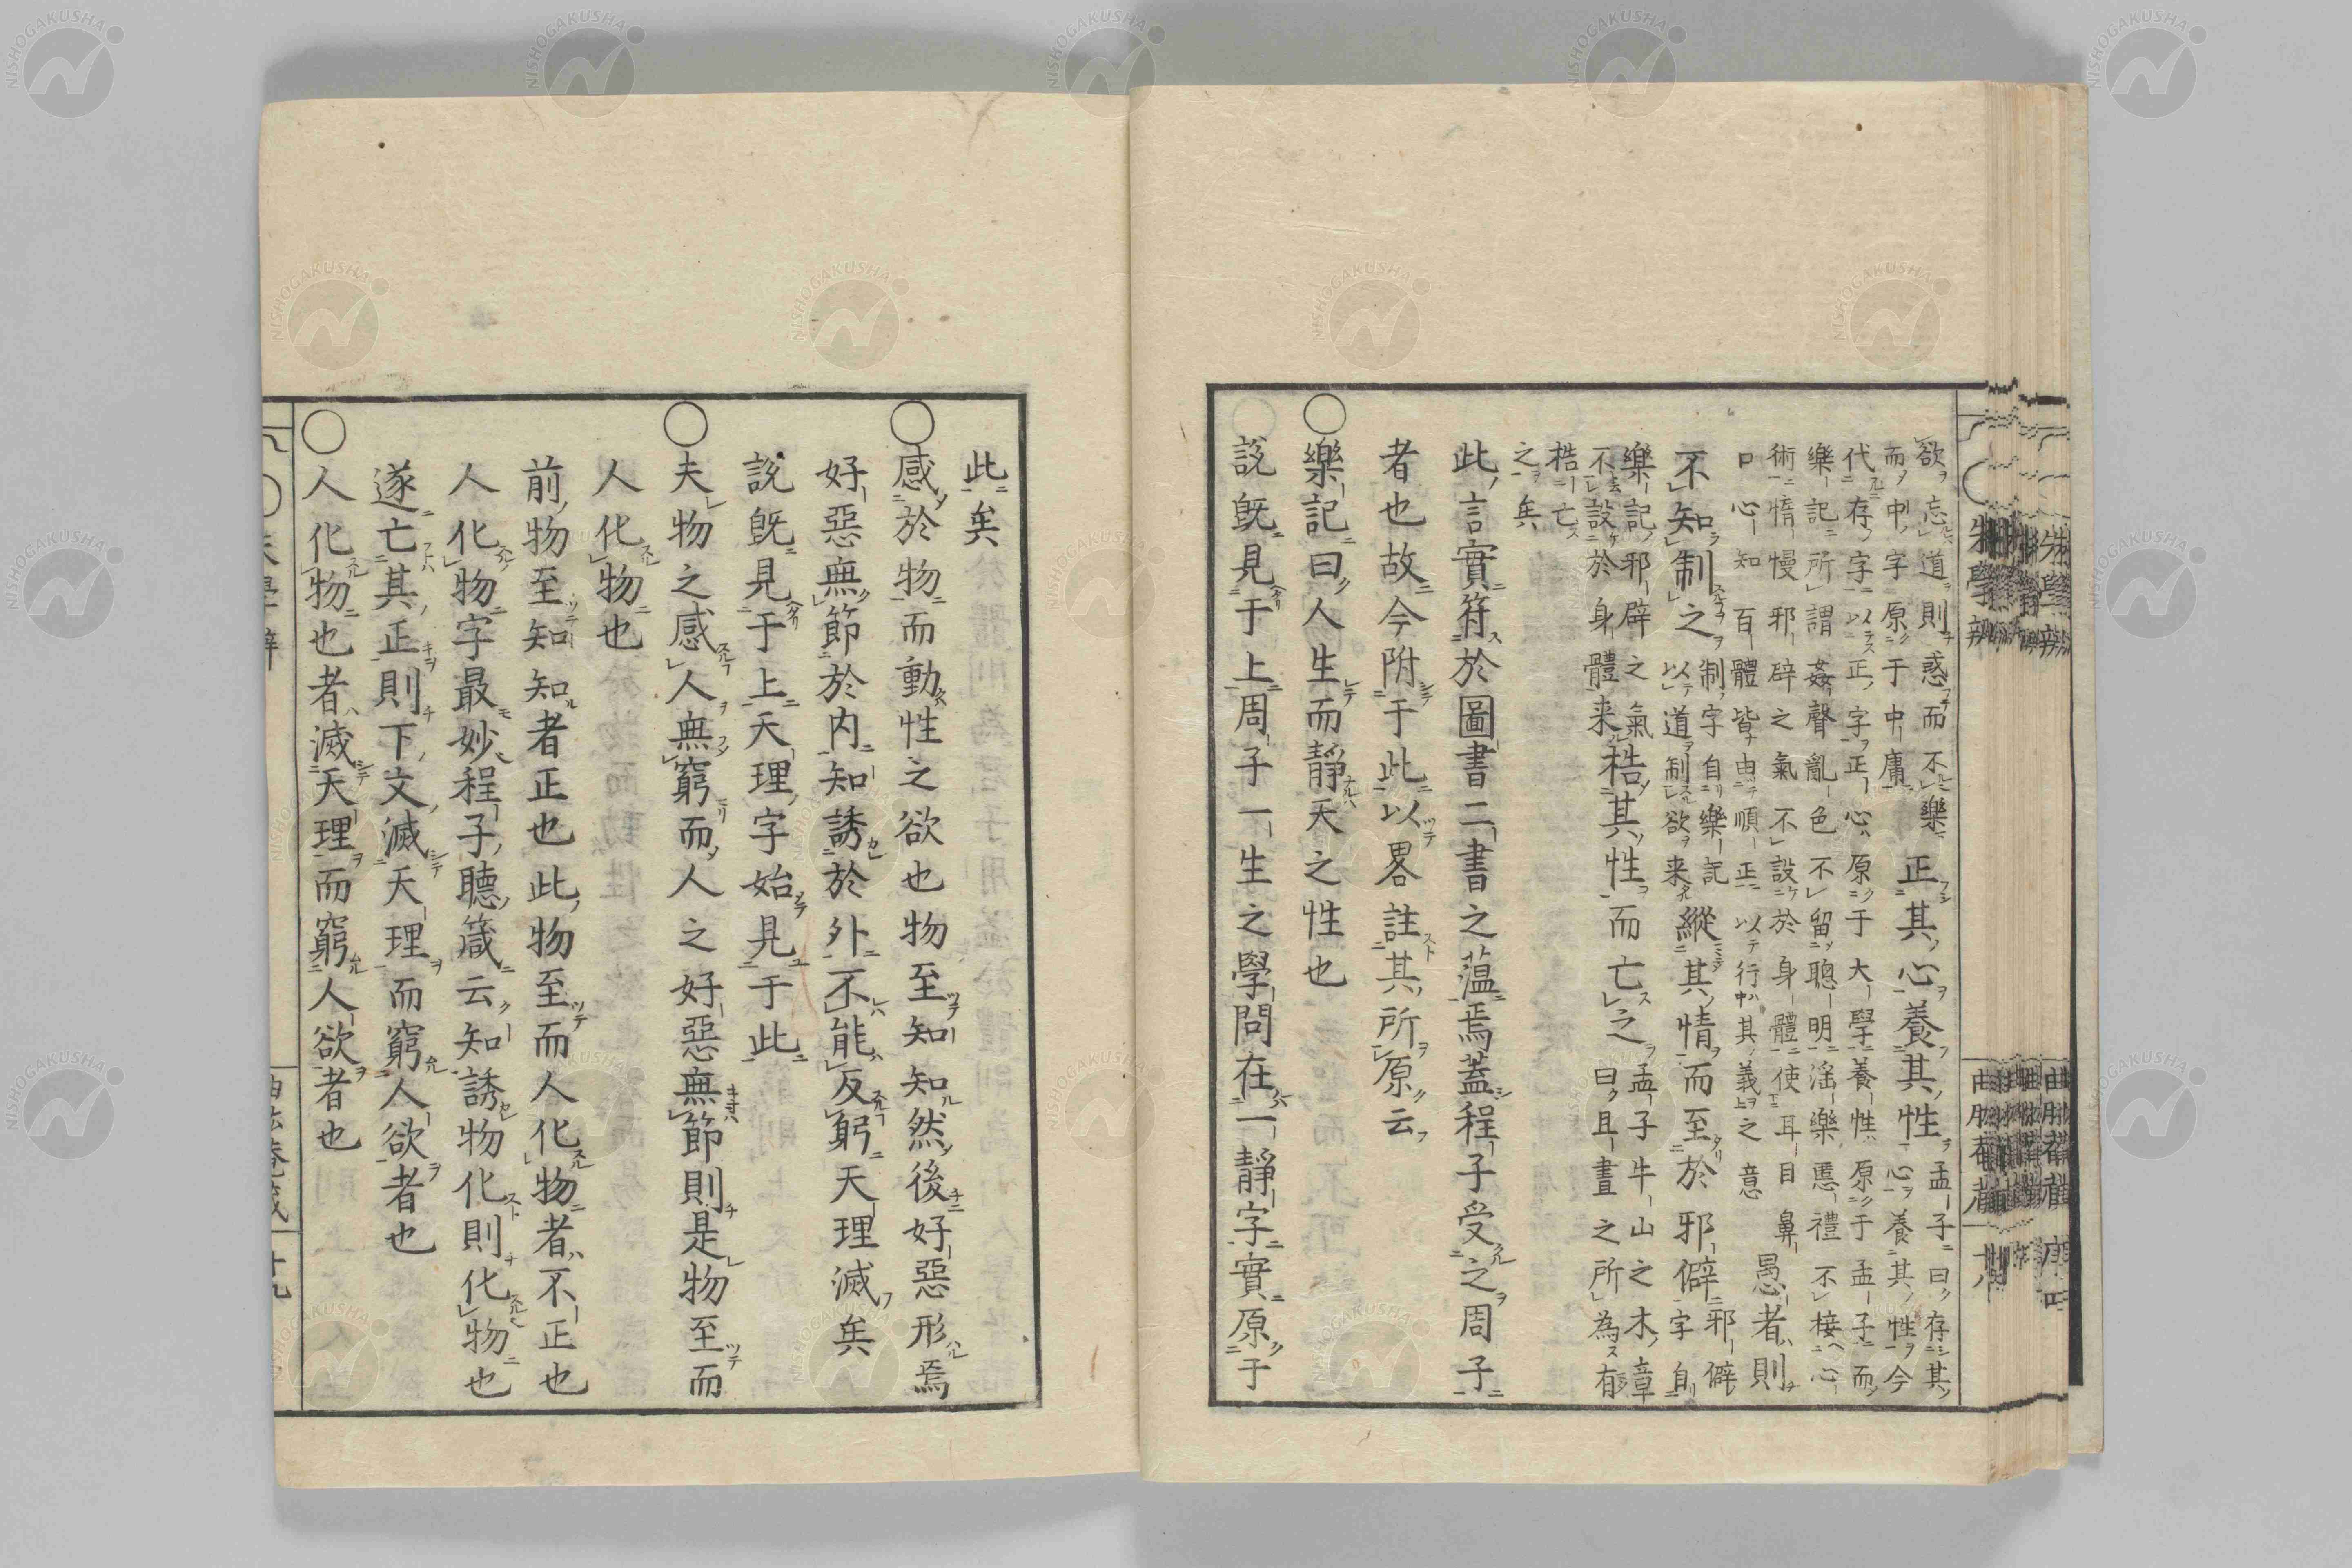 欲忘道則惑而不樂正其心養其性孟子曰存其
而中字原于中庸心養其性今
代存字以正字正心原于大學養性原于孟子而
樂記所謂姦聲亂色不留聰明淫樂慝禮不接心
術惰慢邪辟之氣不設於身體使耳目鼻
口心知百體皆由順正以行其義之意愚者則
不知制之制字自樂記以道制欲来縱其情而至於邪僻邪僻字自
樂記邪辟之氣不設於身體来梏其性而亡之孟子牛山之木章曰且晝之所為有
梏亡之矣
此言實符於圖書二書之薀焉蓋程子受之周子
者也故今附于此以畧註其所原云
○樂記曰人生而靜天之性也
說既見于上周子一生之學問在一靜字實原于
此矣
○感於物而動性之欲也物至知知然後好惡形焉
好惡無節於内知誘於外不能反躬天理滅矣
說既見于上天理字始見于此
○夫物之感人無窮而人之好惡無節則是物至而
人化物也
前物至知知者正也此物至而人化物者不正也
人化物字最妙程子聽箴云知誘物化則化物也
遂亡其正則下文滅天理而窮人欲者也
○人化物也者滅天理而窮人欲者也
NISHOGAKUSHA